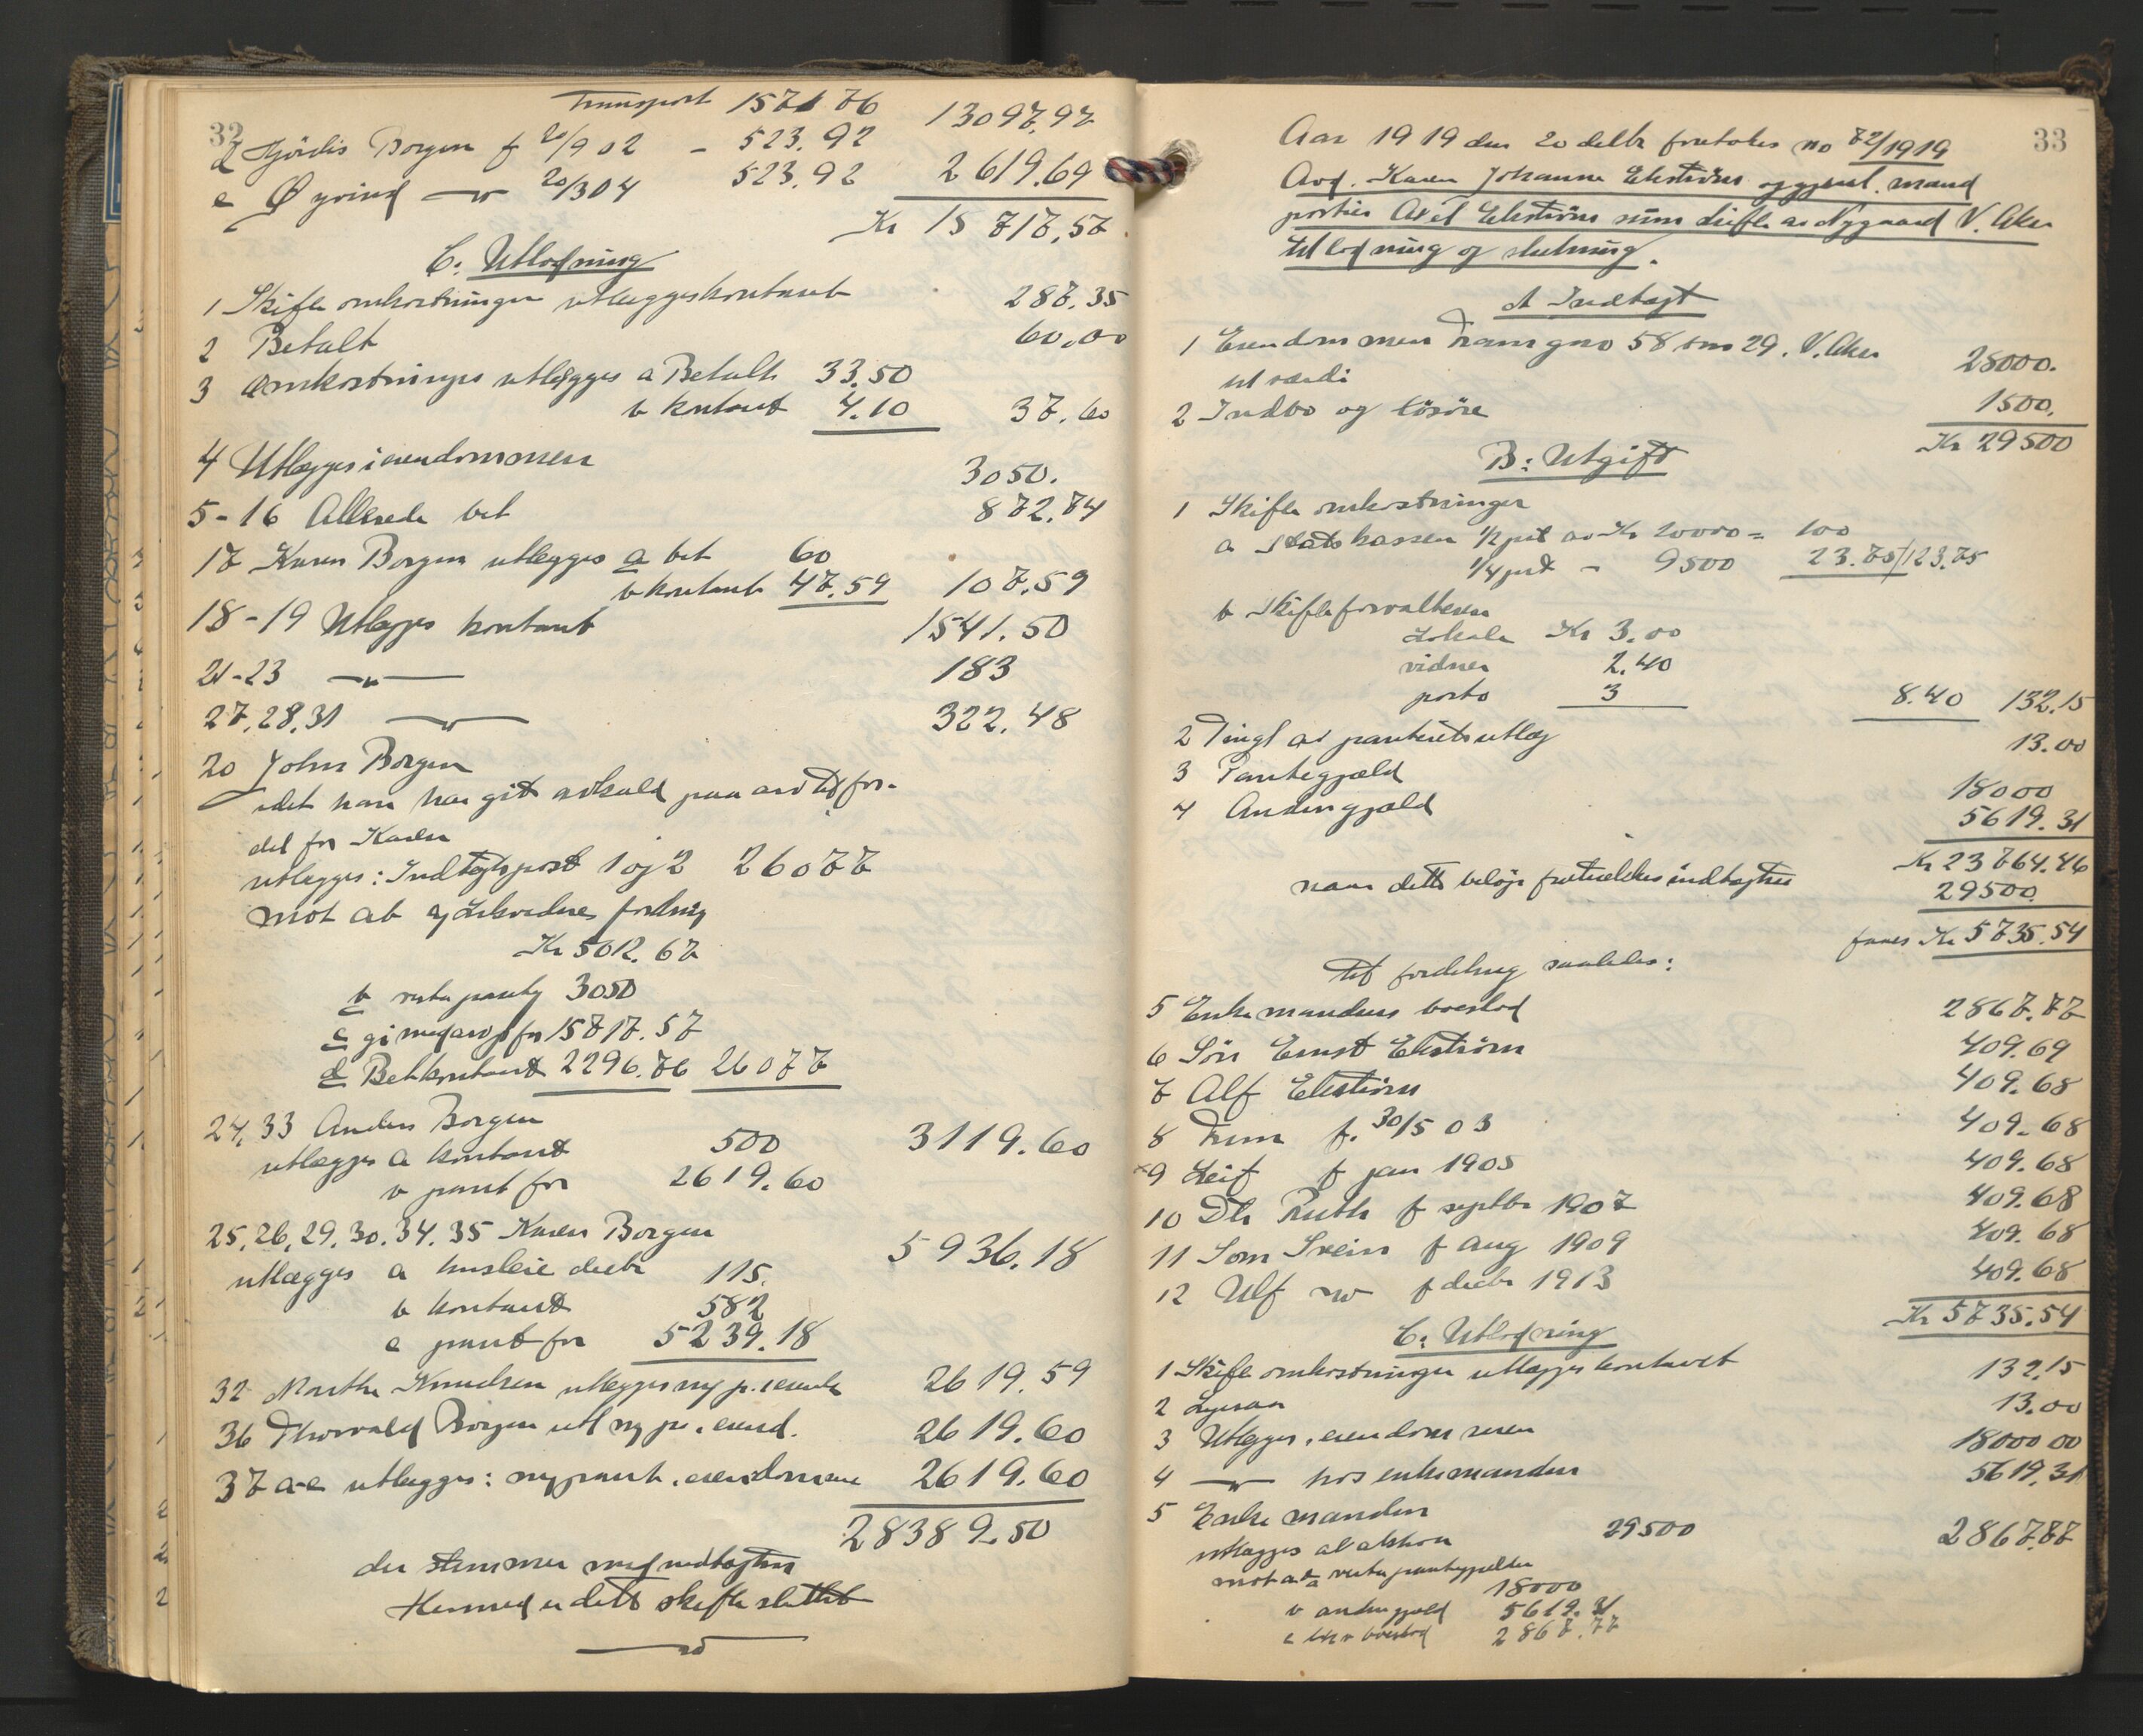 32
Transport 1571 76 13097.97
d Hjördis Borgen f 20/9 02 - 523.92
e Øyvind -"- 20/3 04 523.92 2619.69
Kr 15717,57
C: Utlodning
1 Skifteomkostninger utlægges kontant 287.35
2 Betalt 60,00
3 Omkostninger utlægges a Betalt 33.50
b kontant 4.10 37.60
4 Utlægges i eiendommen 3050.
5-16 Allerede bet 872.74
17 Karen Borgen utlægges a bet 60
b kontant 47.59 107.59
18-19 Utlægges kontant 1541.50
21-23 -"- 183
27,28,31 -"- 322.48
20 John Borgen
idet han har git avkald paa arv til for-
del for Karen
utlægges: Indtægtspost 1 og 2 26077
mot at a likviderer fordring
Kr 5012.67
b rester pantg 3050
c gi ny pantob for 15717.57
d Bet kontant 2296.76 26077
24,33 Anders Borgen 3119.60
utlægges a kontant 500
b pant for 2619.60
25,26,29,30,34,35 Karen Borgen 5936.18
utlægges a husleie decbr 115.
b kontant 582
c pant for 5239.18
32 Marthe Knudsen utlægges ny p. i eiend 2619.59
36 Thorvald Borgen utl ny p. i eiend. 2619.60
37 a-e utlægges: ny pant i eiendommen 2619.60
28389.50
der stemmer med indtægten
Hermed er dette skifte sluttet
33
Aar 1919 den 20 decbr foretokes no 72/1919
Avd. Karen Johanne Ekströms og gjenl. mand
portier Axel Ekströms skifte av Nygaard V. Aker
til lodning og slutning.
A Indtægt
1 Eiendommen Fram gno 58 bno 29. V. Aker
til værdi 28000.
2 Indbo og lösöre 1500.
Kr 29500
B: Utgift
1 Skifteomkostninger
a Statskassen 1/2 pct av Kr 20000 = 100
1/4 pct - 9500 23.75/123.75
b Skifteforvalteren
Lokale Kr 3.00
vidner 2.40
porto 3 8.40 132.15
2 Tingl av panteutlæg 13.00
3 Pantegjæld 18000
4 Anden gjæld 5619.31
Kr 23764.46
naar dette beløp fratrækkes indtægten 29500
faaes Kr 5735.54
til fordeling saaledes:
5 Enkemandens boeslod 2867.77
6 Sön Ernst Ekström 409.69
7 Alf Ekström 409.68
8 Finn f. 30/5 03 409.68
×9 Leif f jan 1905 409.68
10 Dtr Ruth f septbr 1907 409.68
11 Sön Svein f aug 1909 409.68
12 Ulf -"- f decbr 1913 409.68
Kr 5735.54
C: Utlodning
1 Skifteomkostninger utlægges kontant 132,15
2 Ligesaa 13.00
3 Utlægges i eiendommen 18000 00
4 -"- hos enkemanden 5619.31
5 Enkemanden
utlægges al aktiva 29500 2867.77
mot at a rester pantegjælden 18000
b anden gjæld 5619.31
c egen boeslod 2867.77